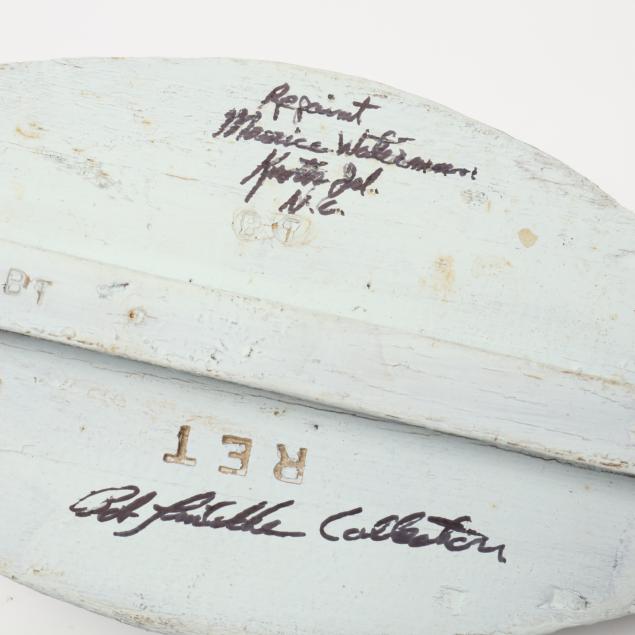 Repaint
Maurice Waterman
Knotts Isl.
N.C.
P T
BT
RET
Collection